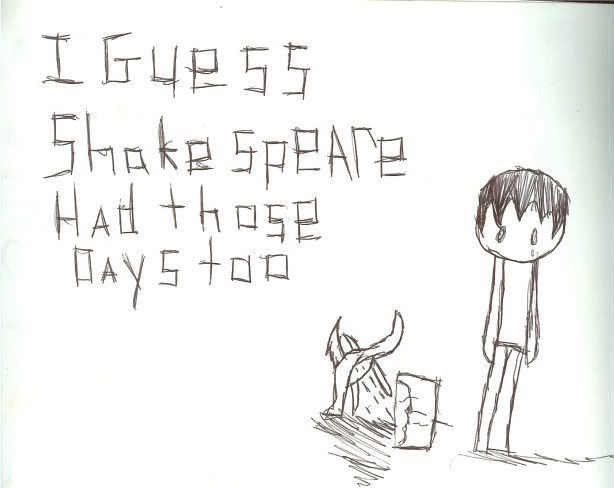 I Guess
Shakespeare
Had those
Days too